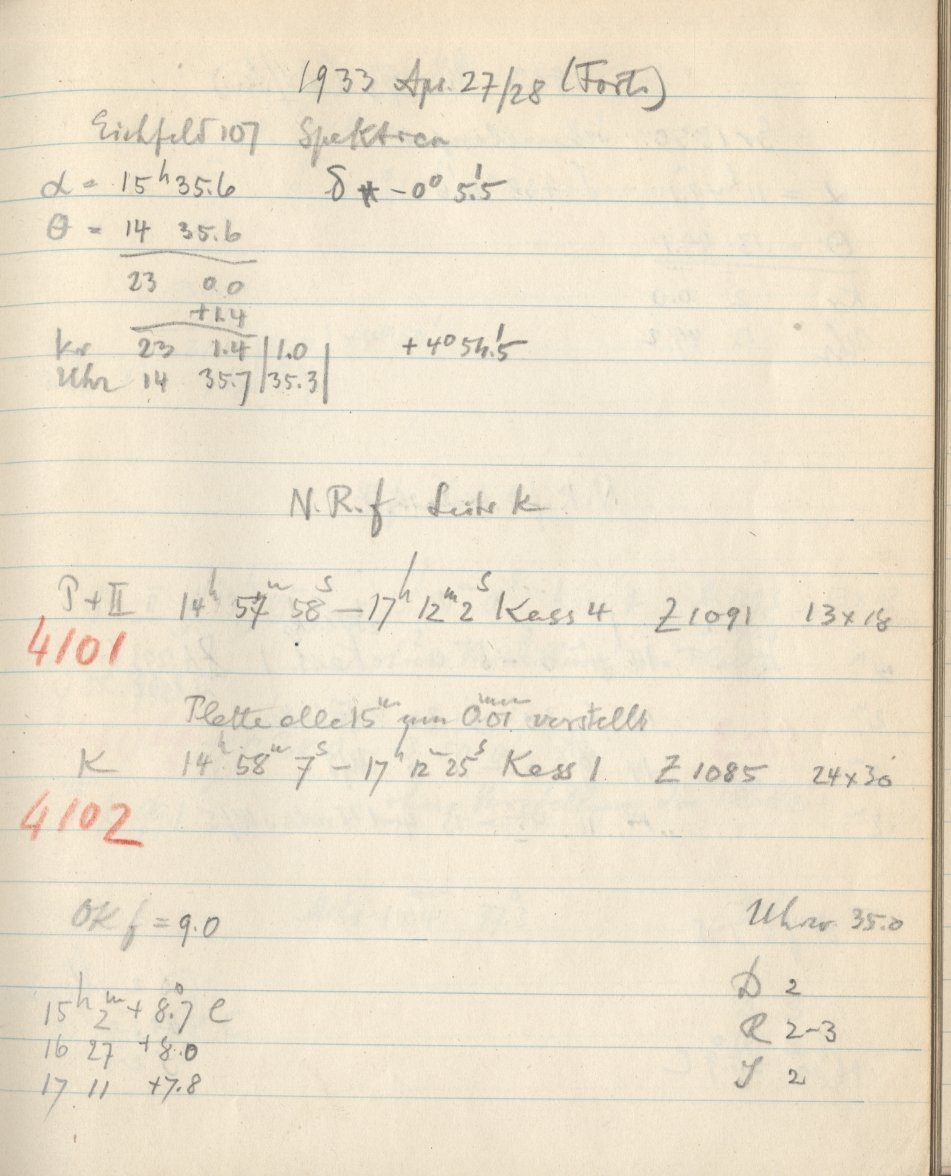 1933 Apr. 27/28 (Forts.)
Eichfeld 107 Spektren
α = 15ʰ 35.6 δ * -0° 5.'5
θ = 14 35.6
23 0.0
+1.4
Kr 23 1.4 | 1.0 | +4° 54.'5
Uhr 14 35.7 | 35.3 |
N.R.f Leitr K
P+II 14ʰ 57ᵐ 58ˢ – 17ʰ 12ᵐ 2ˢ Kass 4 Z 1091 13x18
4101
Platte alle 15ᵐ um 0.01ᵐᵐ verstellt
K 14ʰ 58ᵐ 7ˢ – 17ʰ 12ᵐ 25ˢ Kass 1 Z 1085 24x30
4102
OK f = 9.0 Uhrw 35.0
D 2
15ʰ 2ᵐ + 8.°7 C
R 2-3
16 27 +8.0
J 2
17 11 +7.8